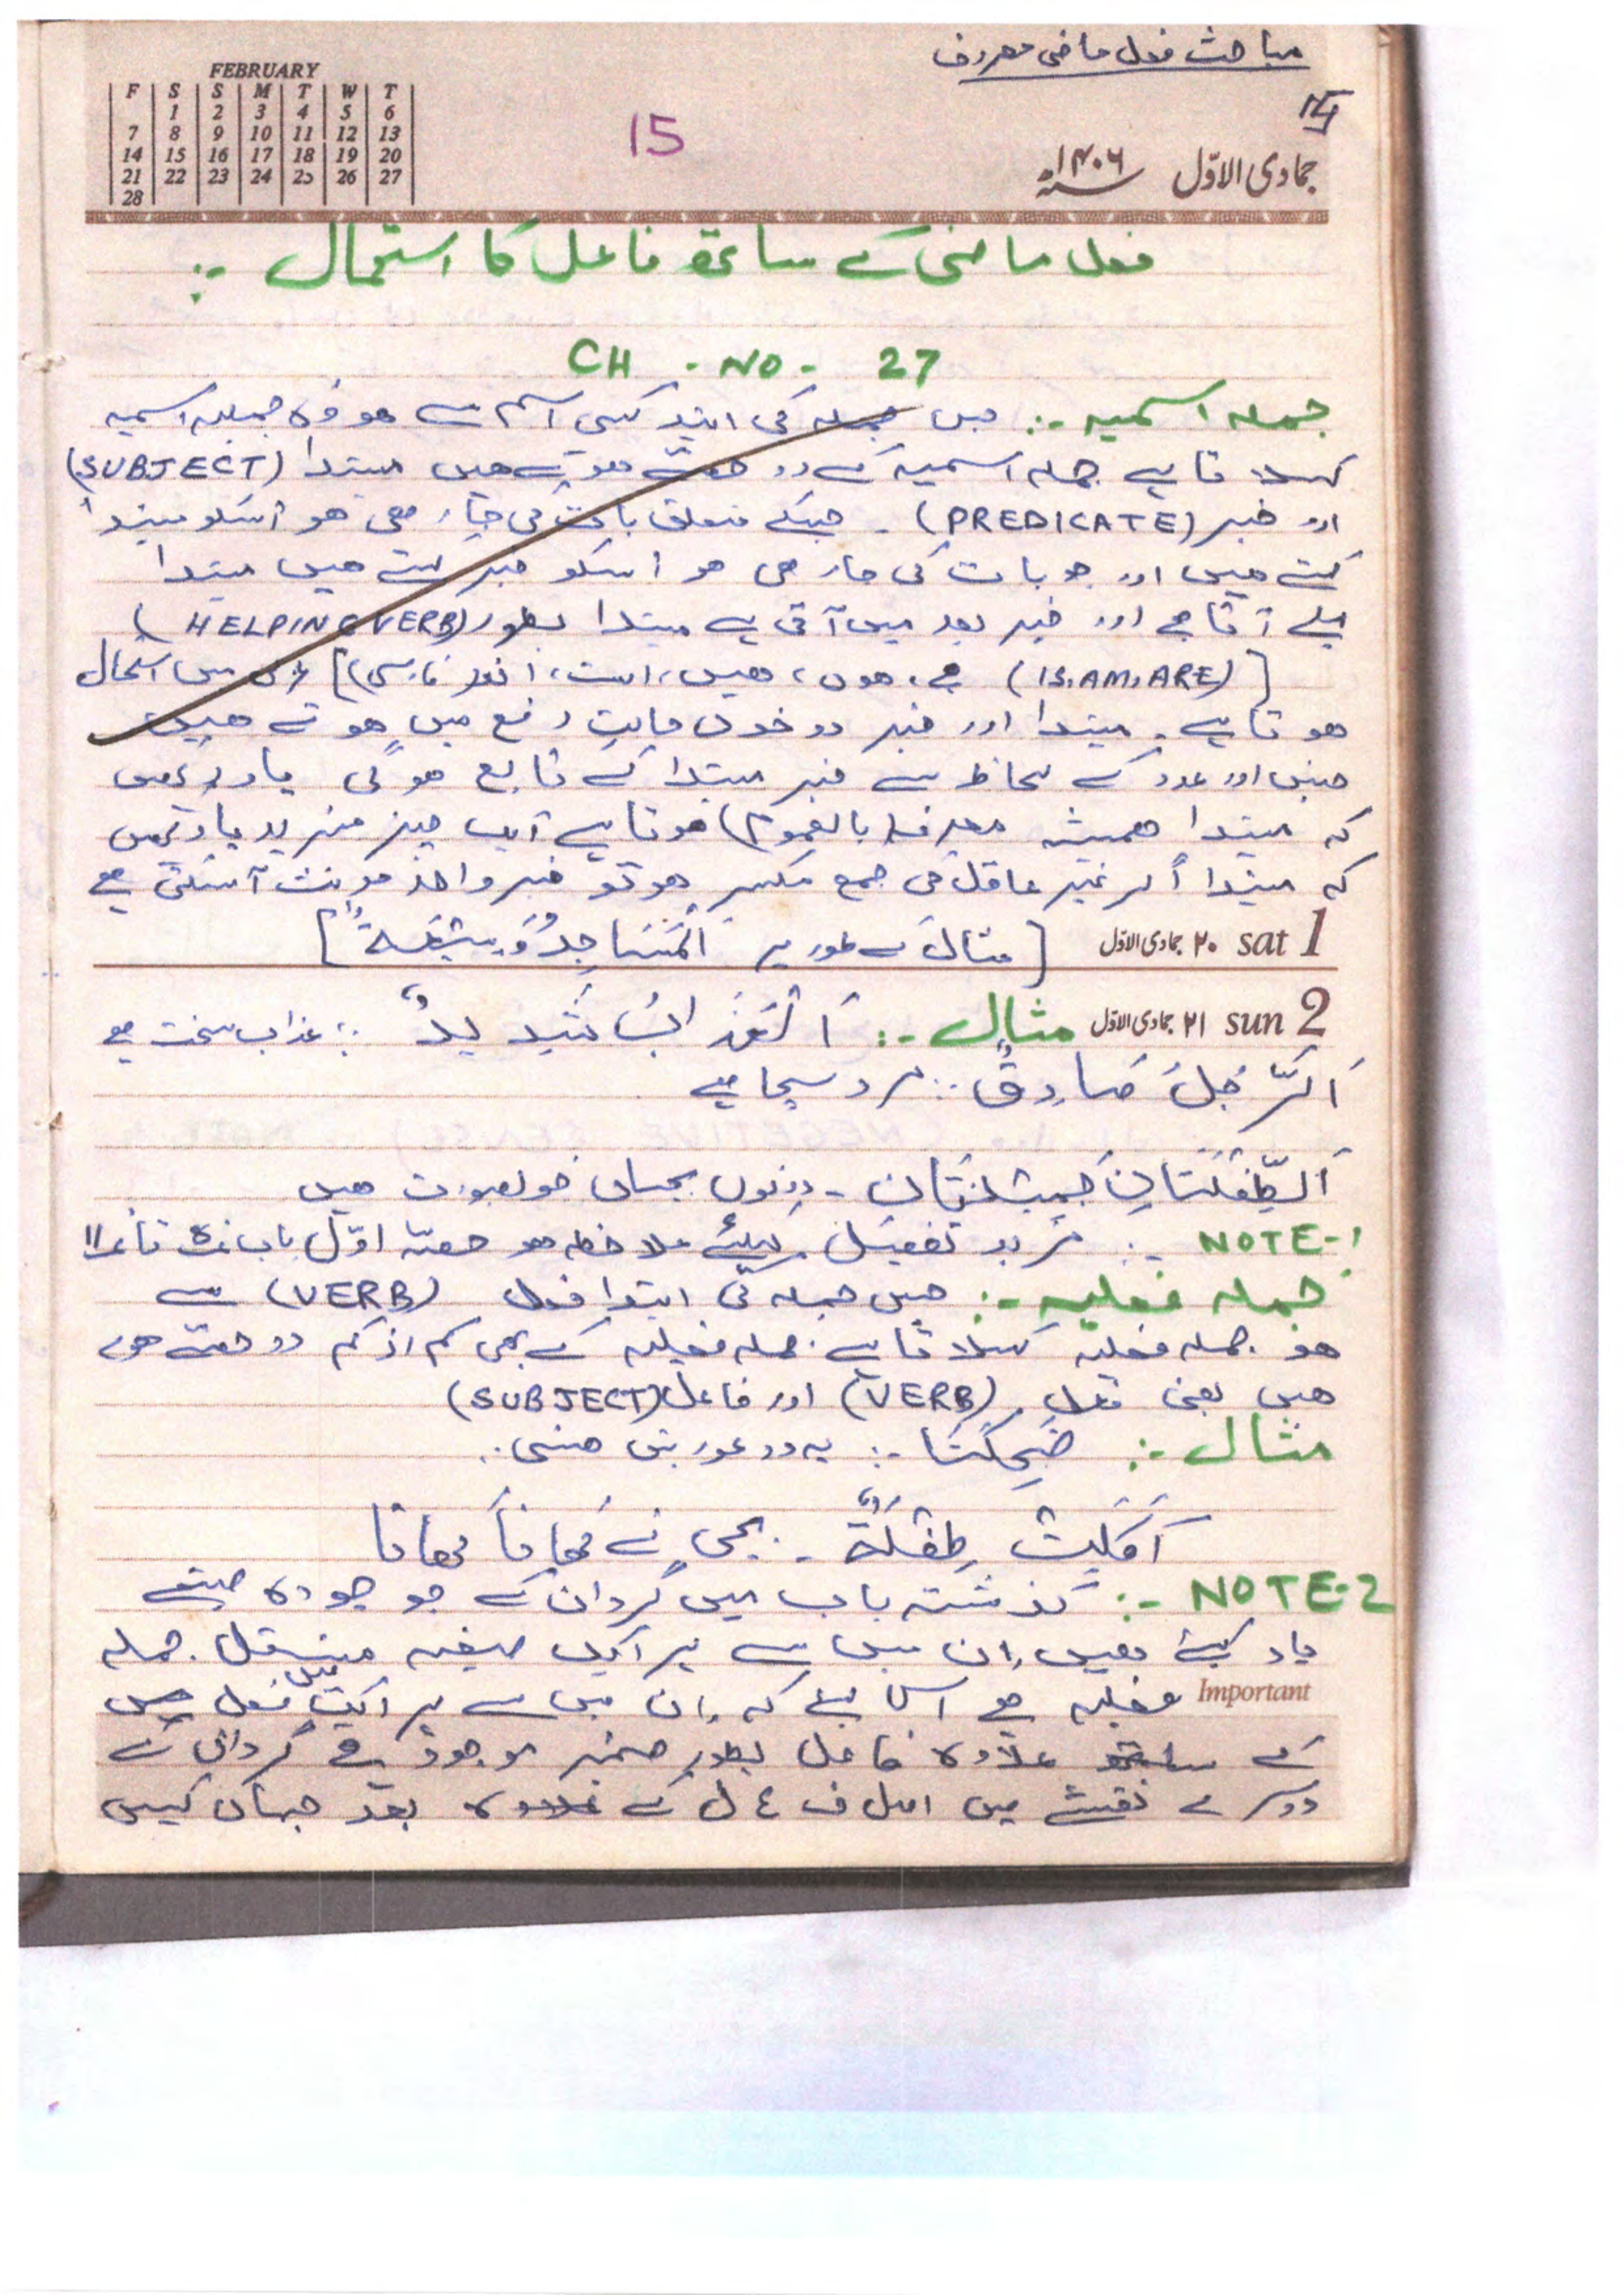 مباحث فعل ماضی معروف
FEBRUARY
F S S M T W T
1 2 3 4 5 6
7 8 9 10 11 12 13
14 15 16 17 18 19 20
21 22 23 24 25 26 27
28
15
جمادی الاوّل ۱۴۰۶
فعل ماضی کے ساتھ فاعل کا استعمال :-
CH - NO - 27
جملہ اسمیہ :- جس جملہ کی ابتدا کسی اسم سے ھو وہ جملہ اسمیہ
کہلاتا ہے جملہ اسمیہ کے دو حصّے ھوتے ھیں مبتدا (SUBJECT)
اور خبر (PREDICATE) - جسکے متعلق بات کی جا رھی ھو اسکو مبتدا
کہتے ھیں اور جو بات کی جا رھی ھو اسکو خبر کہتے ھیں مبتدا
پہلے آتا ھے اور خبر بعد میں آتی ہے مبتدا بطور (HELPING VERB)
[(IS, AM, ARE) ھے، ھوں، ھیں، است، اند فارسی] عربی میں استعمال
ھوتا ہے۔ مبتدا اور خبر دونوں حالتِ رفع میں ھوتے ھیں
جنس اور عدد کے لحاظ سے خبر مبتدا کے تابع ھوگی یاد رکھیں
کہ مبتدا ھمیشہ معرفہ (بالعموم) ھوتا ہے ایک چیز مزید یاد رکھیں
کہ مبتدا اگر غیر عاقل کی جمع مکسر ھو تو خبر واحد مونث آسکتی ھے
sat 1 ۲۰ جمادی الاوّل [مثال کے طور پر اَلْمَسَاجِدُ وَسِيْعَةٌ]
sun 2 ۲۱ جمادی الاوّل مثال :- اَلْعَذَابُ شَدِيْدٌ :. عذاب سخت ھے
اَلرَّجُلُ صَادِقٌ :. مرد سچا ھے
اَلطِّفْلَتَانِ جَمِيْلَتَانِ - دونوں بچیاں خوبصورت ھیں
NOTE-1 :- مزید تفصیل کیلئے ملاحظہ ھو حصّہ اوّل باب تا 11
جملہ فعلیہ :- جس جملہ کی ابتدا فعل (VERB) سے
ھو جملہ فعلیہ کہلاتا ہے. جملہ فعلیہ کے بھی کم از کم دو حصّے ھوتے
ھیں یعنی فعل (VERB) اور فاعل (SUBJECT)
مثال :- ضَحِکَتَا :- یہ دو عورتیں ھنسی..
اَکَلَتْ طِفْلَةٌ - بچی نے کھانا کھایا
NOTE-2 :- گذشتہ باب میں گردان کے جو چودہ صیغے
یاد کیئے ھیں ان میں سے ہر ایک صیغہ مستقل جملہ
Important فعلیہ ھے اس لیئے کہ ان میں سے ہر ایک میں فعل
کے علاوہ فاعل بطور ضمیر موجود ہے گردان کے
دوسرے نقشے میں اصل ف ع ل کے بعد جہاں کہیں